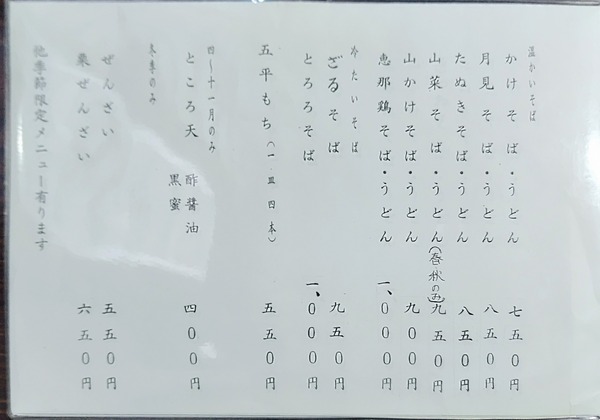 温かいそば
かけそば・うどん 七五〇円
月見そば・うどん 八五〇円
たぬきそば・うどん 八五〇円
山菜そば・うどん(春秋のみ) 九五〇円
山かけそば・うどん 九〇〇円
恵那鶏そば・うどん 一、〇〇〇円
冷たいそば
ざるそば 九五〇円
とろろそば 一、〇〇〇円
五平もち(一皿四本) 五五〇円
四〜十一月のみ
ところ天 酢醤油 四〇〇円
黒蜜
冬季のみ
ぜんざい 五五〇円
栗ぜんざい 六五〇円
他季節限定メニュー有ります